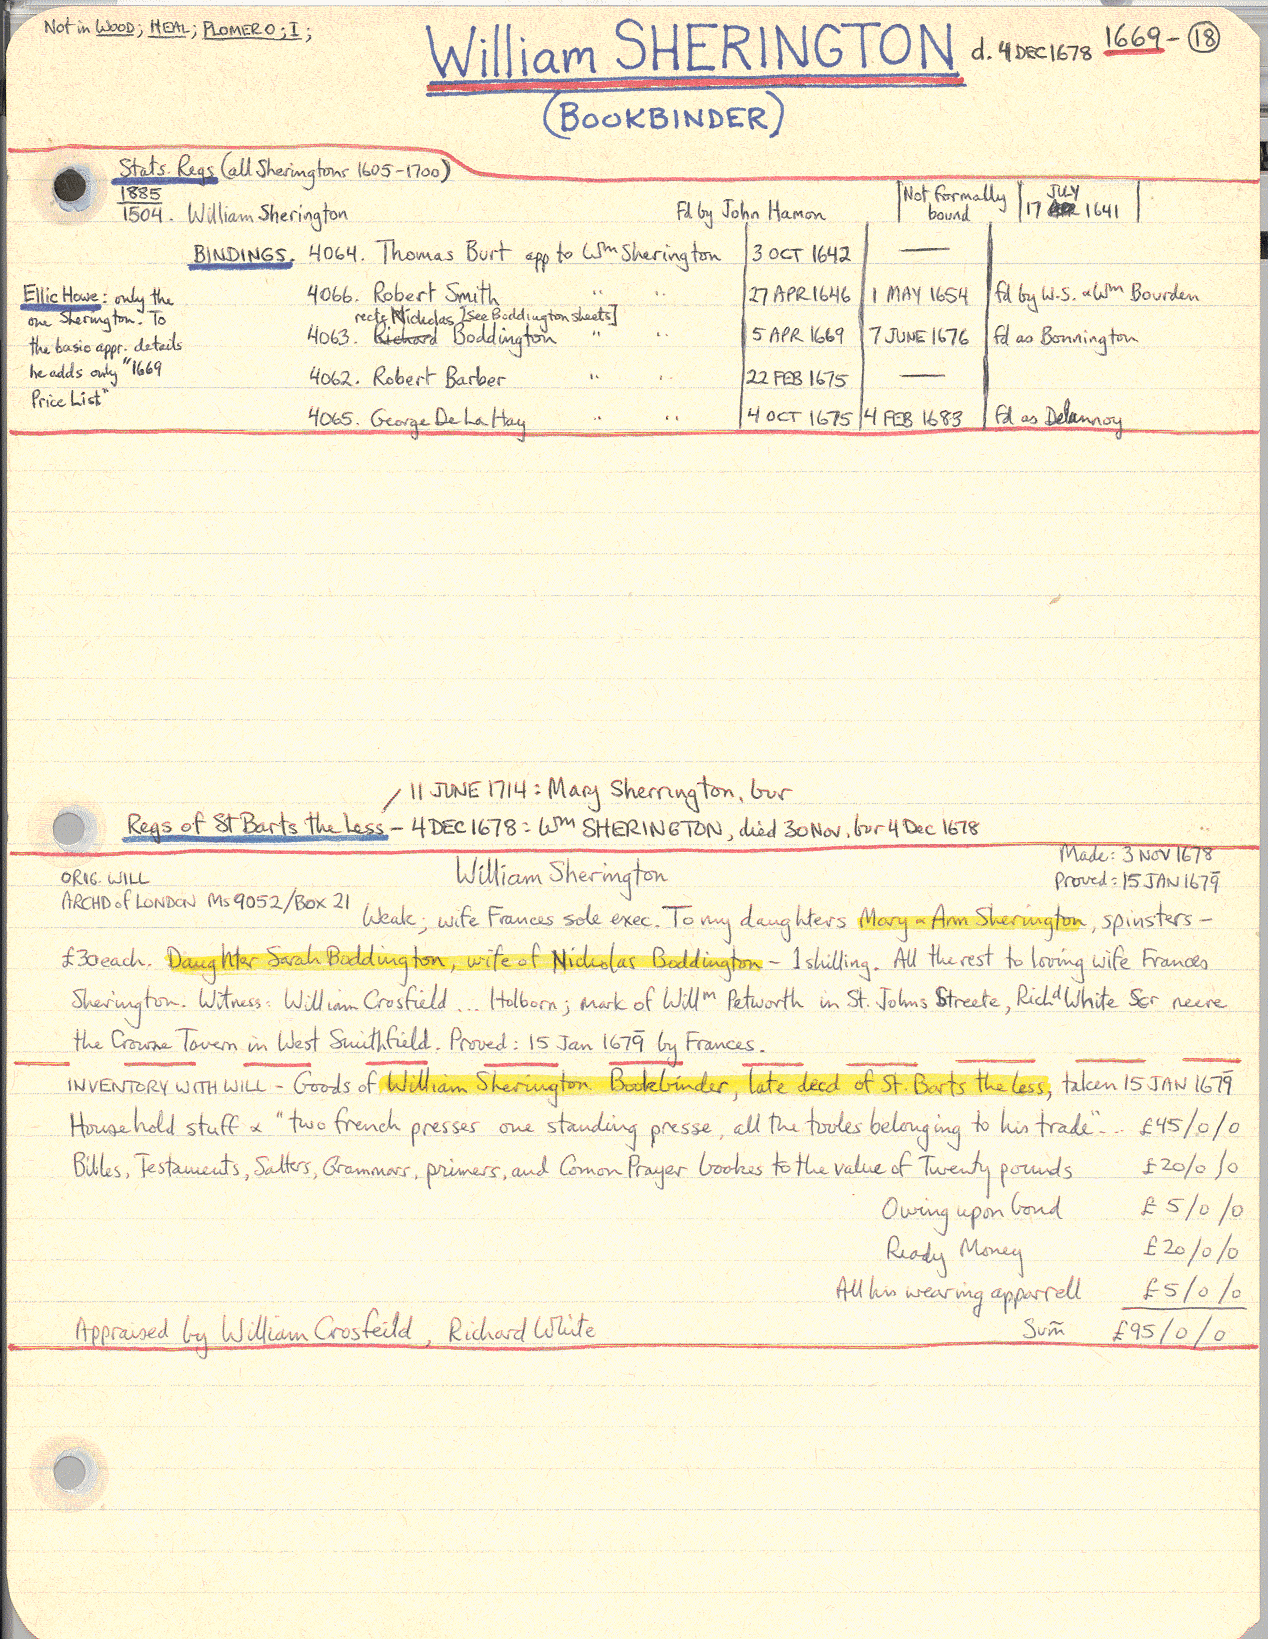 Not in WOOD; HEAL; PLOMER O; I;
William SHERINGTON d. 4 DEC 1678 1669 - 18
(BOOKBINDER)
Stats. Regs (all Sheringtons 1605-1700)
1885
1504. William Sherington fd by John Hamon Not formally bound 17 JULY 1641
BINDINGS. 4064. Thomas Burt app to Wm Sherington 3 OCT 1642 —
Ellic Howe: only the
one Sherington. To
the basic appr. details
he adds only "1669
Price List"
4066. Robert Smith " " 27 APR 1646 1 MAY 1654 fd by W.S. & Wm Bourden
recte Nicholas [see Boddington sheets]
4063. Richard Boddington " " 5 APR 1669 7 JUNE 1676 fd as Bonnington
4062. Robert Barber " " 22 FEB 1675 —
4065. George De La Hay " " 4 OCT 1675 4 FEB 1683 fd as Delannoy
/ 11 JUNE 1714: Mary Sherrington, bur
Regs of St Barts the Less - 4 DEC 1678: Wm SHERINGTON, died 30 Nov. bur 4 Dec 1678
ORIG. WILL William Sherington Made: 3 NOV 1678
ARCHD of LONDON Ms 9052/Box 21 Proved: 15 JAN 1679
Weak; wife Frances sole exec. To my daughters Mary & Ann Sherington, spinsters -
£30 each. Daughter Sarah Boddington, wife of Nicholas Boddington - 1 shilling. All the rest to loving wife Frances
Sherington. Witness: William Crosfield ... Holborn; mark of Willm Petworth in St. Johns Streete, Richd White Scr neere
the Crowne Tavern in West Smithfield. Proved: 15 Jan 1679 by Frances.
INVENTORY WITH WILL - Goods of William Sherington Bookebinder, late decd of St. Barts the less, taken 15 JAN 1679
Household stuff & "two french presses one standing presse, all the tooles belonging to his trade"... £45/0/0
Bibles, Testaments, Salters, Grammars, primers, and Comon Prayer bookes to the value of Twenty pounds £20/0/0
Owing upon bond £5/0/0
Ready Money £20/0/0
All his wearing apparrell £5/0/0
Appraised by William Crosfeild, Richard White Sum £95/0/0